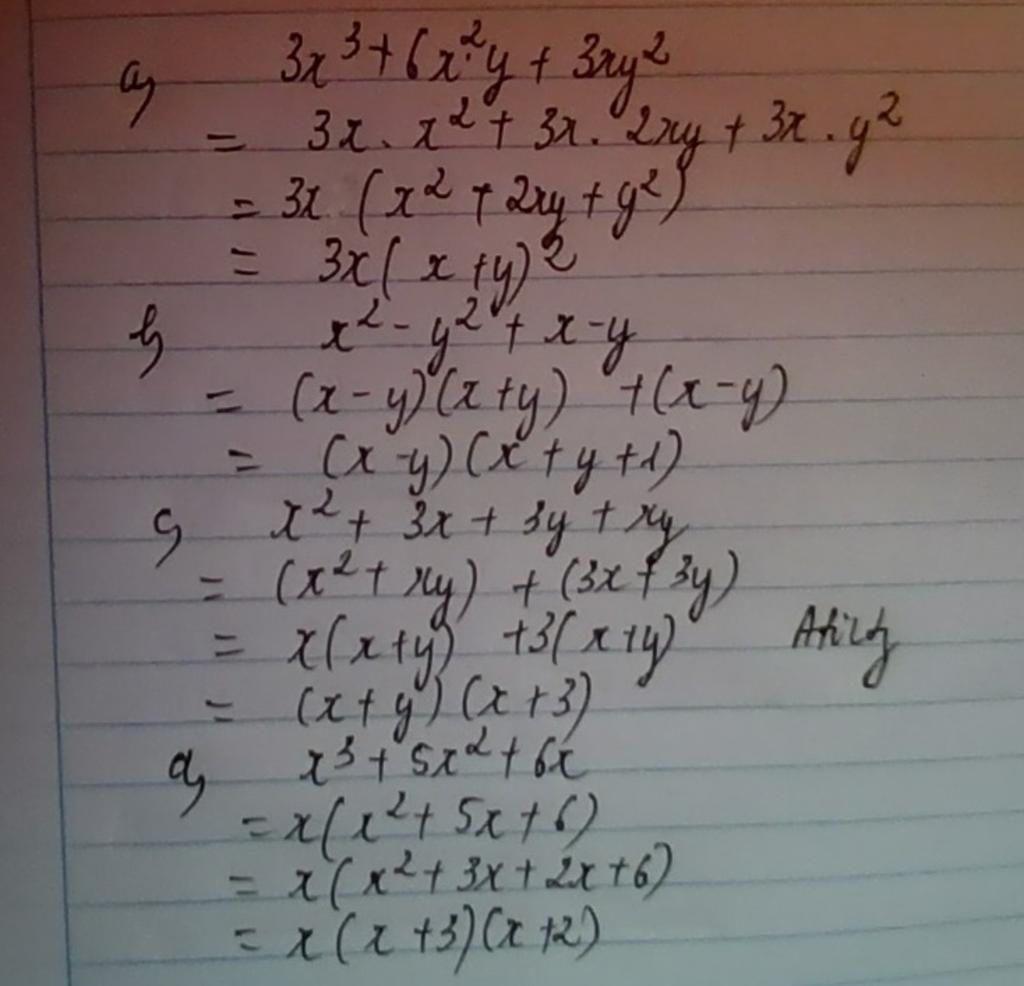 a) 3x³ + 6x²y + 3xy²
= 3x . x² + 3x . 2xy + 3x . y²
= 3x (x² + 2xy + y²)
= 3x (x + y)²
b) x² - y² + x - y
= (x - y)(x + y) + (x - y)
= (x - y)(x + y + 1)
c) x² + 3x + 3y + xy
= (x² + xy) + (3x + 3y)
= x(x + y) + 3(x + y)
= (x + y)(x + 3)
d) x³ + 5x² + 6x
= x(x² + 5x + 6)
= x(x² + 3x + 2x + 6)
= x(x + 3)(x + 2)